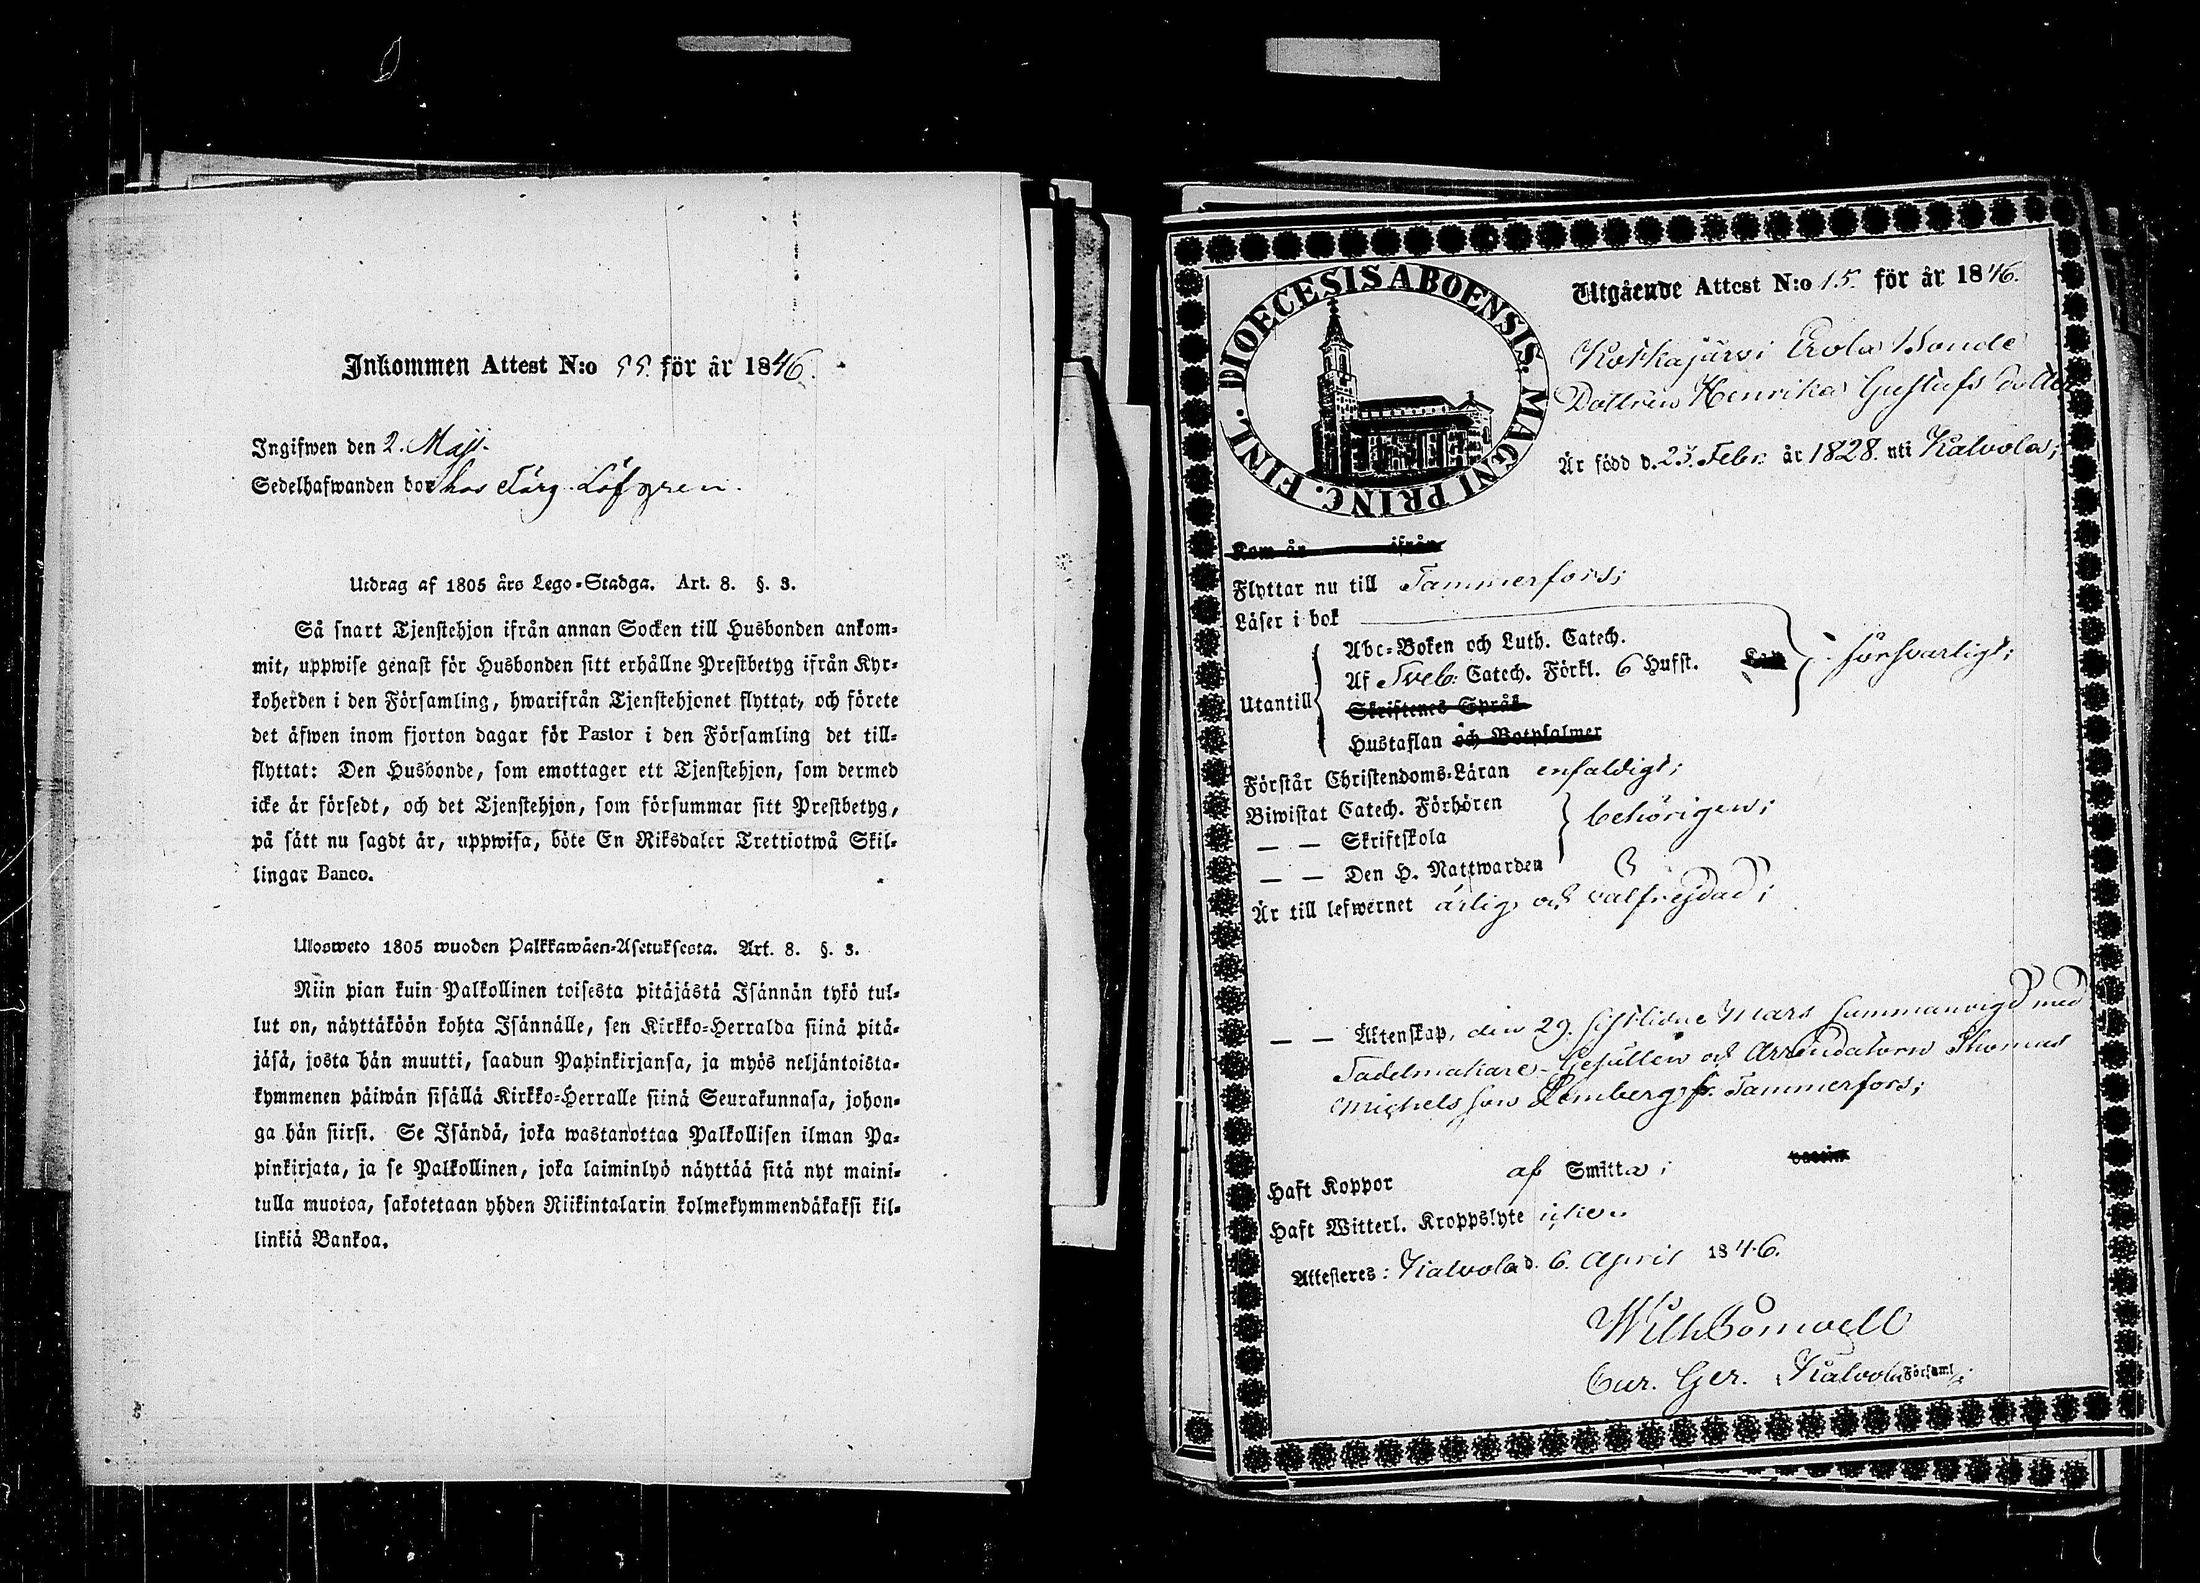 Inkommen Attest N:o 99. för år 1846.
Ingifwen den 2. Maji.
Sedelhafwanden bor hos Färg. Löfgren.
Utdrag af 1805 års Lego-Stadga. Art. 8. §. 3.
Så snart Tjenstehjon ifrån annan Socken till Husbonden ankom-
mit, uppwise genast för Husbonden sitt erhållne Prestbetyg ifrån Kyr-
koherden i den Församling, hwarifrån Tjenstehjonet flyttat, och förete
det äfwen inom fjorton dagar för Pastor i den Församling det till-
flyttat: Den Husbonde, som emottager ett Tjenstehjon, som dermed
icke är försedt, och det Tjenstehjon, som försummar sitt Prestbetyg,
på sätt nu sagdt är, uppwisa, böte En Riksdaler Trettiotwå Skil-
lingar Banco.
Ulosweto 1805 wuoden Palkkawäen-Asetuksesta. Art. 8. §. 3.
Niin pian kuin Palkollinen toisesta pitäjästä Isännän tykö tul-
lut on, näyttäköön kohta Isännälle, sen Kirkko-Herralda siinä pitä-
jäsä, josta hän muutti, saadun Papinkirjansa, ja myös neljäntoista-
kymmenen päiwän sisällä Kirkko-Herralle siinä Seurakunnasa, johon-
ga hän siirsi. Se Isändä, joka wastanottaa Palkollisen ilman Pa-
pinkirjata, ja se Palkollinen, joka laiminlyö näyttää sitä nyt maini-
tulla muotoa, sakotetaan yhden Riikintalarin kolmekymmendäkaksi kil-
linkiä Bankoa.
DIOECESIS ABOENSIS. MAGNI PRINC. FINL.
Utgående Attest N:o 15. för år 1846.
Kotkajärvi Erola Bonde
Dottren Henrika Gustafs dotter
Är född d. 23. Febr. år 1828. uti Kalvola;
Kom år ifrån
Flyttar nu till Tammerfors;
Läser i bok
Abc-Boken och Luth. Catech.
Utantill Af Sveb. Catech. Förkl. 6 Hufst. försvarligt;
Skriftenes Språk
Hustaflan och Botpsalmer
Förstår Christendoms-Läran enfaldigt;
Biwistat Catech. Förhören
— — Skriftskola behörigen;
— — Den H. Nattwarden
Är till lefwernet ärlig och välfrejdad;
— — Äktenskap, den 29. sistlidne Mars sammanvigd med
Sadelmakare-Gesällen och Arrendatorn Thomas
Michelsson Lemberg, fr. Tammerfors;
Haft Koppor af Smitta; vaccin
Haft Witterl. Kroppslyte icken.
Attesteras: Kalvola d. 6. April 1846.
Cur. Ger. i Kalvola Församl.